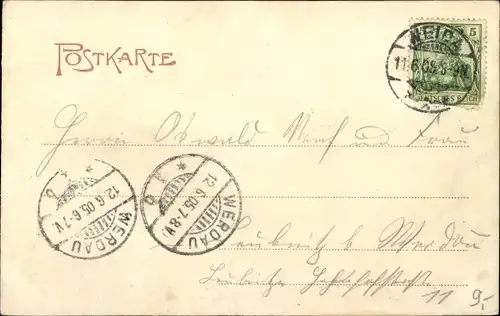 POSTKARTE
WEIDA
11.6.05.5-
5
DEUTSCHES REICH
Herrn Oswald und Frau
12.6.05.6-7V.
WERDAU
12.6.05.7-8V.
WERDAU
Leubnitz b Werdau
11 9,-